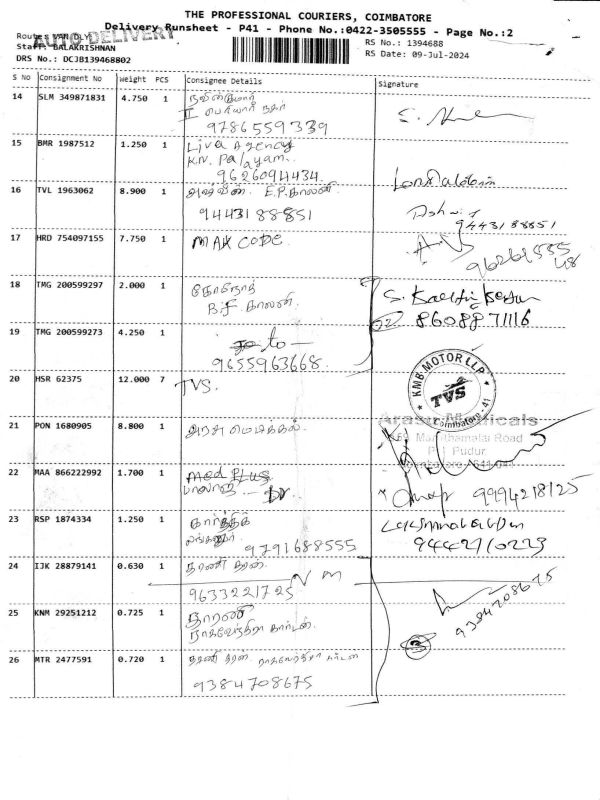 THE PROFESSIONAL COURIERS, COIMBATORE
Delivery Runsheet - P41 - Phone No.:0422-3505555 - Page No.:2
Route: VAN DLY
AUTO DELIVERY
Staff: BALAKRISHNAN
DRS No.: DCJB139468802
RS No.: 1394688
RS Date: 09-Jul-2024
S No Consignment No Weight PCS Consignee Details Signature
14 SLM 349871831 4.750 1
9786559339
15 BMR 1987512 1.250 1 Liva Agency
K.N. Palayam
9626094434
16 TVL 1963062 8.900 1 E.P. காலனி
9443188851
9443188851
17 HRD 754097155 7.750 1 MAX CODE
18 TMG 200599297 2.000 1
B.F காலனி
8608871116
19 TMG 200599273 4.250 1 — to —
9655963668
20 HSR 62375 12.000 7 TVS.
KMB MOTOR LLP
TVS
Coimbatore - 41
21 PON 1680905 8.800 1 அரசு மெடிக்கல்
Arasu Medicals
Maruthamalai Road
P.N. Pudur
22 MAA 866222992 1.700 1 Med Plus
9994218125
23 RSP 1874334 1.250 1 கார்த்திக்
9791688555
9442710223
24 IJK 28879141 0.630 1 தரணி தரன்
9633221725
9384708675
25 KNM 29251212 0.725 1 தாரணி
ராகவேந்திரா கார்டன்
26 MTR 2477591 0.720 1 தரணி தரன் ராகவேந்திரா கார்டன்
9384708675